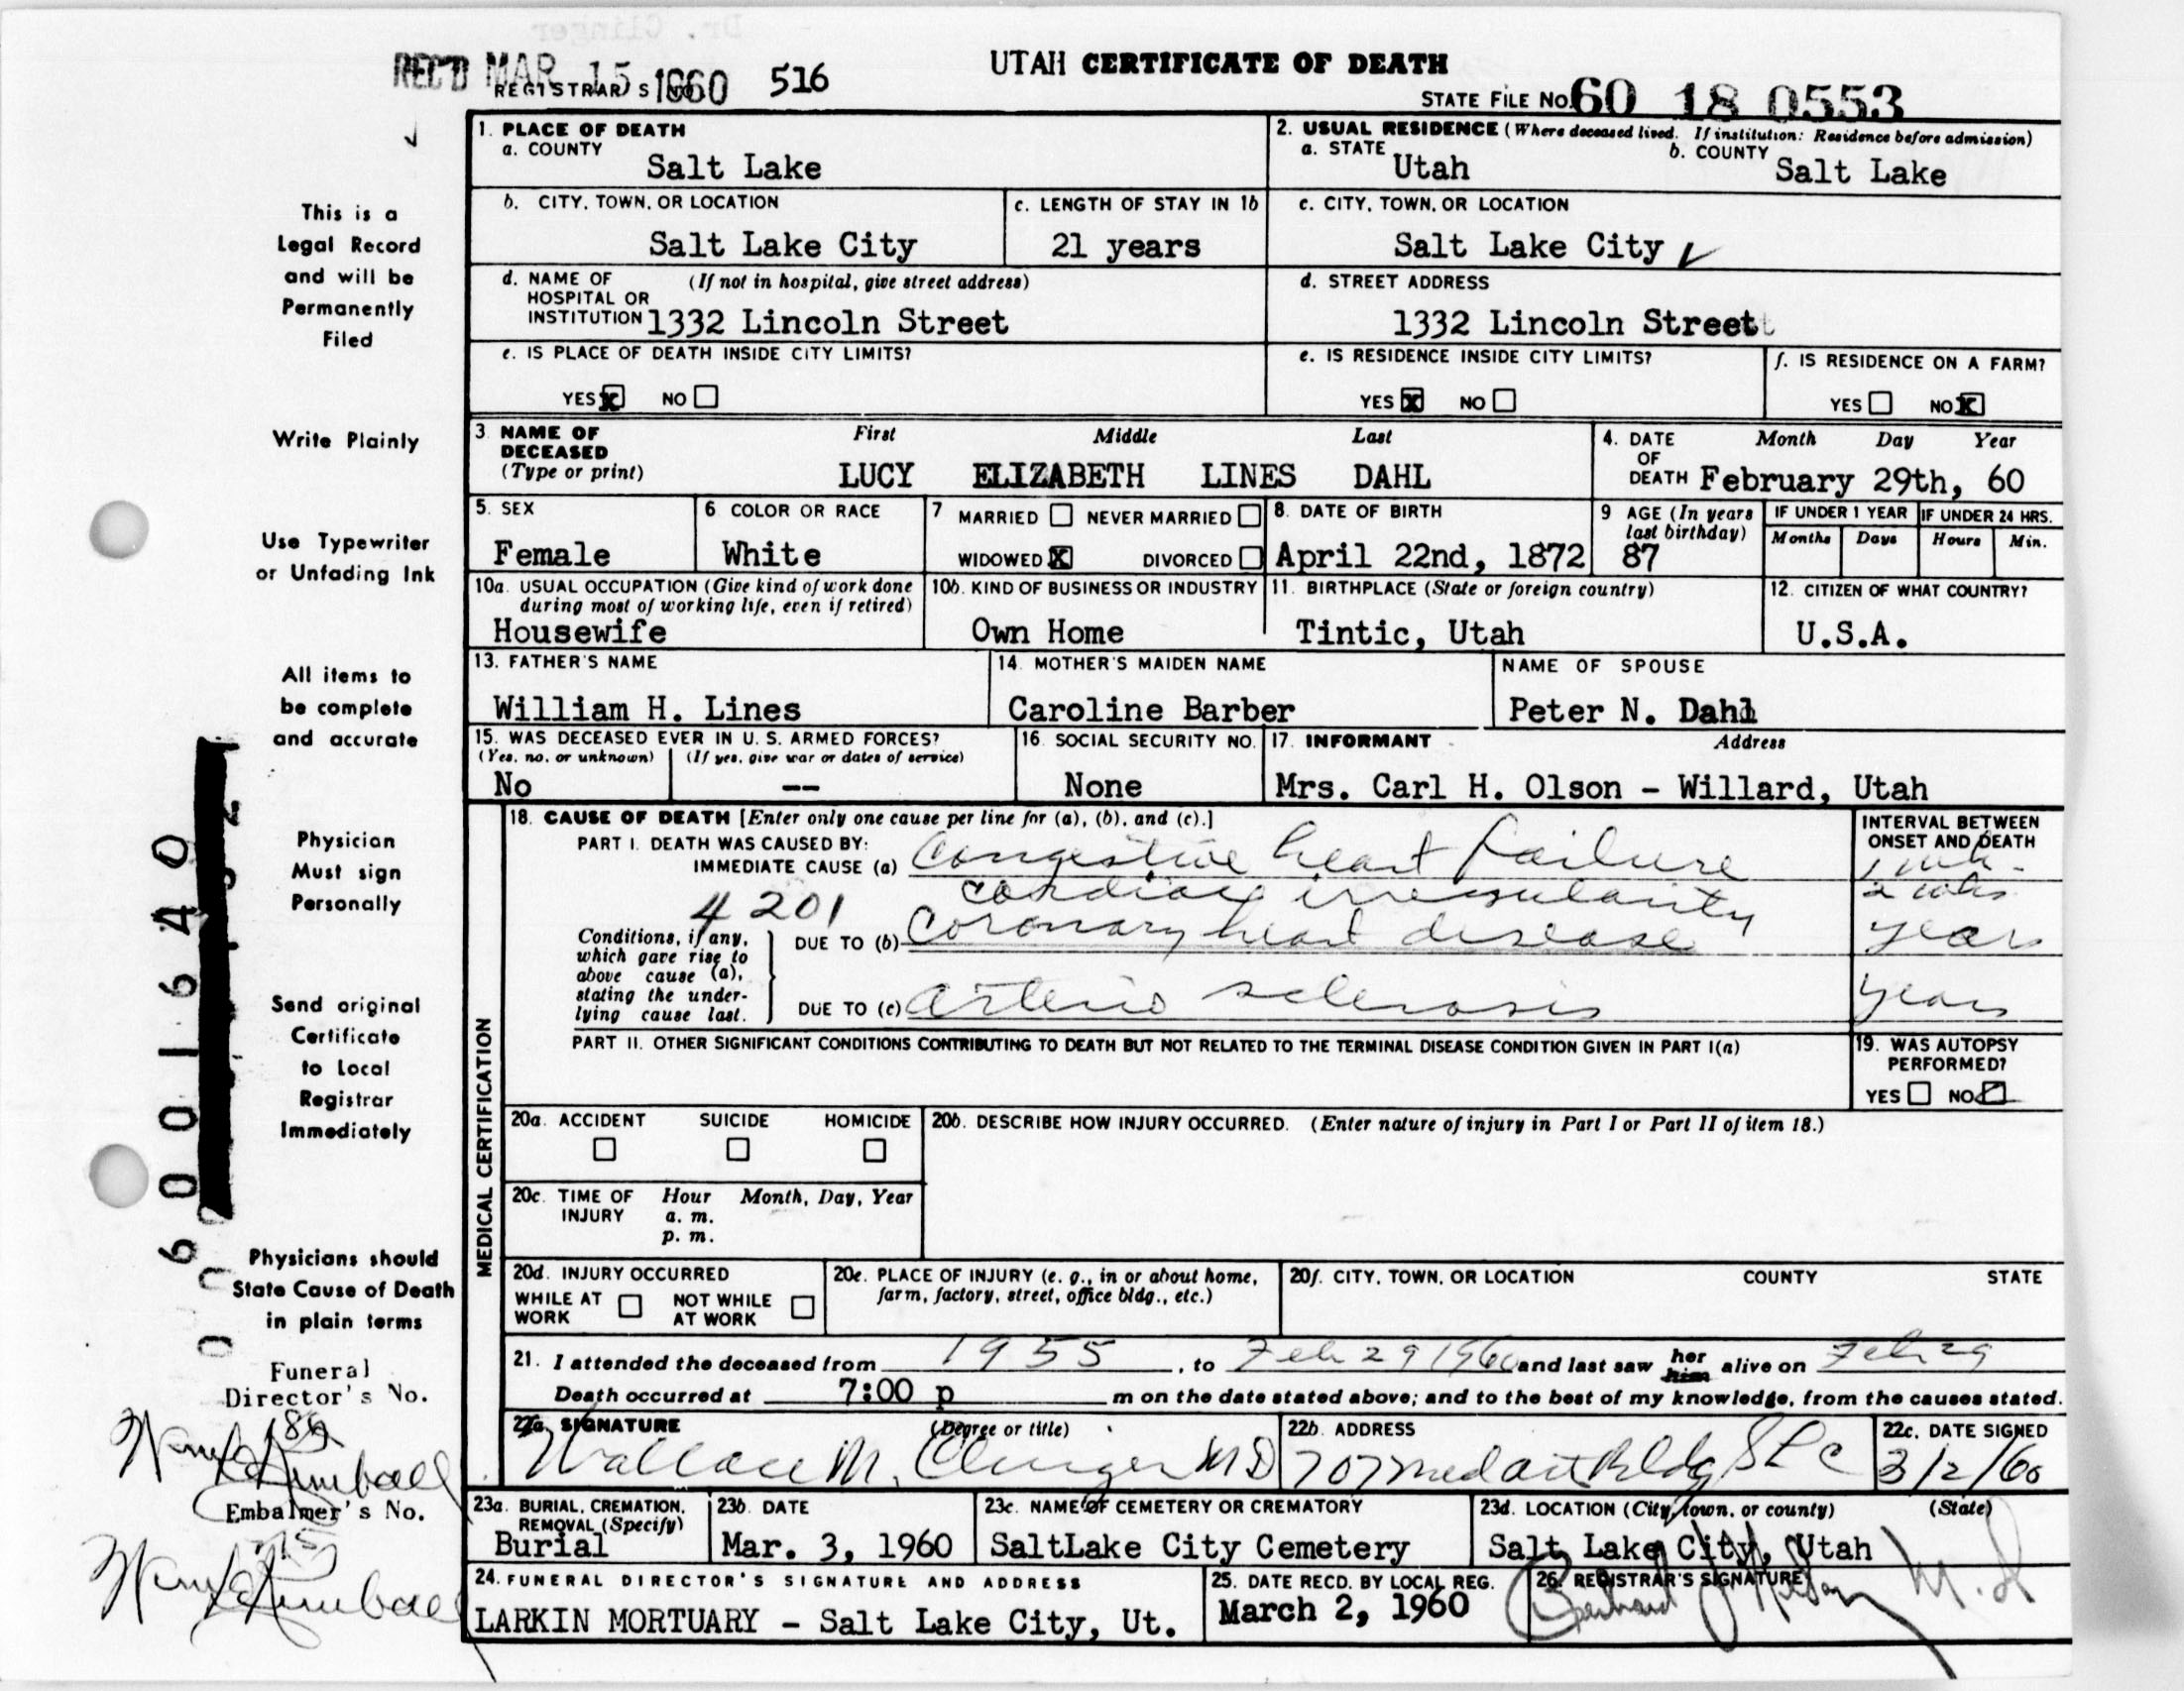 Dr. Clinger
REC'D MAR 15 1960
REGISTRAR'S NO. 516
UTAH CERTIFICATE OF DEATH
STATE FILE NO. 60 18 0553
This is a
Legal Record
and will be
Permanently
Filed
Write Plainly
Use Typewriter
or Unfading Ink
All items to
be complete
and accurate
Physician
Must sign
Personally
Send original
Certificate
to Local
Registrar
Immediately
Physicians should
State Cause of Death
in plain terms
Funeral
Director's No.
Embalmer's No.
1. PLACE OF DEATH
a. COUNTY
Salt Lake
2. USUAL RESIDENCE (Where deceased lived. If institution: Residence before admission)
a. STATE
Utah
b. COUNTY
Salt Lake
b. CITY, TOWN, OR LOCATION
Salt Lake City
c. LENGTH OF STAY IN 1b
21 years
c. CITY, TOWN, OR LOCATION
Salt Lake City
d. NAME OF (If not in hospital, give street address)
HOSPITAL OR
INSTITUTION 1332 Lincoln Street
d. STREET ADDRESS
1332 Lincoln Street
e. IS PLACE OF DEATH INSIDE CITY LIMITS?
YES X NO
e. IS RESIDENCE INSIDE CITY LIMITS?
YES X NO
f. IS RESIDENCE ON A FARM?
YES NO X
3 NAME OF
DECEASED
(Type or print)
First Middle Last
LUCY ELIZABETH LINES DAHL
4. DATE
OF
DEATH
Month Day Year
February 29th, 60
5. SEX
Female
6 COLOR OR RACE
White
7 MARRIED NEVER MARRIED
WIDOWED X DIVORCED
8. DATE OF BIRTH
April 22nd, 1872
9 AGE (In years
last birthday)
87
IF UNDER 1 YEAR
Months Days
IF UNDER 24 HRS.
Hours Min.
10a. USUAL OCCUPATION (Give kind of work done
during most of working life, even if retired)
Housewife
10b. KIND OF BUSINESS OR INDUSTRY
Own Home
11. BIRTHPLACE (State or foreign country)
Tintic, Utah
12. CITIZEN OF WHAT COUNTRY?
U.S.A.
13. FATHER'S NAME
William H. Lines
14. MOTHER'S MAIDEN NAME
Caroline Barber
NAME OF SPOUSE
Peter N. Dahl
15. WAS DECEASED EVER IN U. S. ARMED FORCES?
(Yes, no, or unknown) (If yes, give war or dates of service)
No --
16. SOCIAL SECURITY NO.
None
17. INFORMANT Address
Mrs. Carl H. Olson - Willard, Utah
MEDICAL CERTIFICATION
18. CAUSE OF DEATH [Enter only one cause per line for (a), (b), and (c).]
PART I. DEATH WAS CAUSED BY:
IMMEDIATE CAUSE (a) Congestive heart failure
cardiac irregularity
4201
Conditions, if any,
which gave rise to
above cause (a),
stating the under-
lying cause last.
DUE TO (b) Coronary heart disease
DUE TO (c) arterio sclerosis
INTERVAL BETWEEN
ONSET AND DEATH
1 wk.
2 wks
years
years
PART II. OTHER SIGNIFICANT CONDITIONS CONTRIBUTING TO DEATH BUT NOT RELATED TO THE TERMINAL DISEASE CONDITION GIVEN IN PART I(a)
19. WAS AUTOPSY
PERFORMED?
YES NO
20a. ACCIDENT SUICIDE HOMICIDE
20b. DESCRIBE HOW INJURY OCCURRED. (Enter nature of injury in Part I or Part II of item 18.)
20c. TIME OF Hour Month, Day, Year
INJURY a. m.
p. m.
20d. INJURY OCCURRED
WHILE AT WORK NOT WHILE AT WORK
20e. PLACE OF INJURY (e. g., in or about home,
farm, factory, street, office bldg., etc.)
20f. CITY, TOWN, OR LOCATION COUNTY STATE
21. I attended the deceased from 1955, to Feb 29 1960 and last saw her him alive on Feb 29
Death occurred at 7:00 p m on the date stated above; and to the best of my knowledge, from the causes stated.
22a. SIGNATURE (Degree or title)
Wallace M. Clinger MD
22b. ADDRESS
707 Med Art Bldg SLC
22c. DATE SIGNED
3/2/60
23a. BURIAL, CREMATION,
REMOVAL (Specify)
Burial
23b. DATE
Mar. 3, 1960
23c. NAME OF CEMETERY OR CREMATORY
SaltLake City Cemetery
23d. LOCATION (City, town, or county) (State)
Salt Lake City, Utah
24. FUNERAL DIRECTOR'S SIGNATURE AND ADDRESS
LARKIN MORTUARY - Salt Lake City, Ut.
25. DATE RECD. BY LOCAL REG.
March 2, 1960
26. REGISTRAR'S SIGNATURE
M.D
6001640